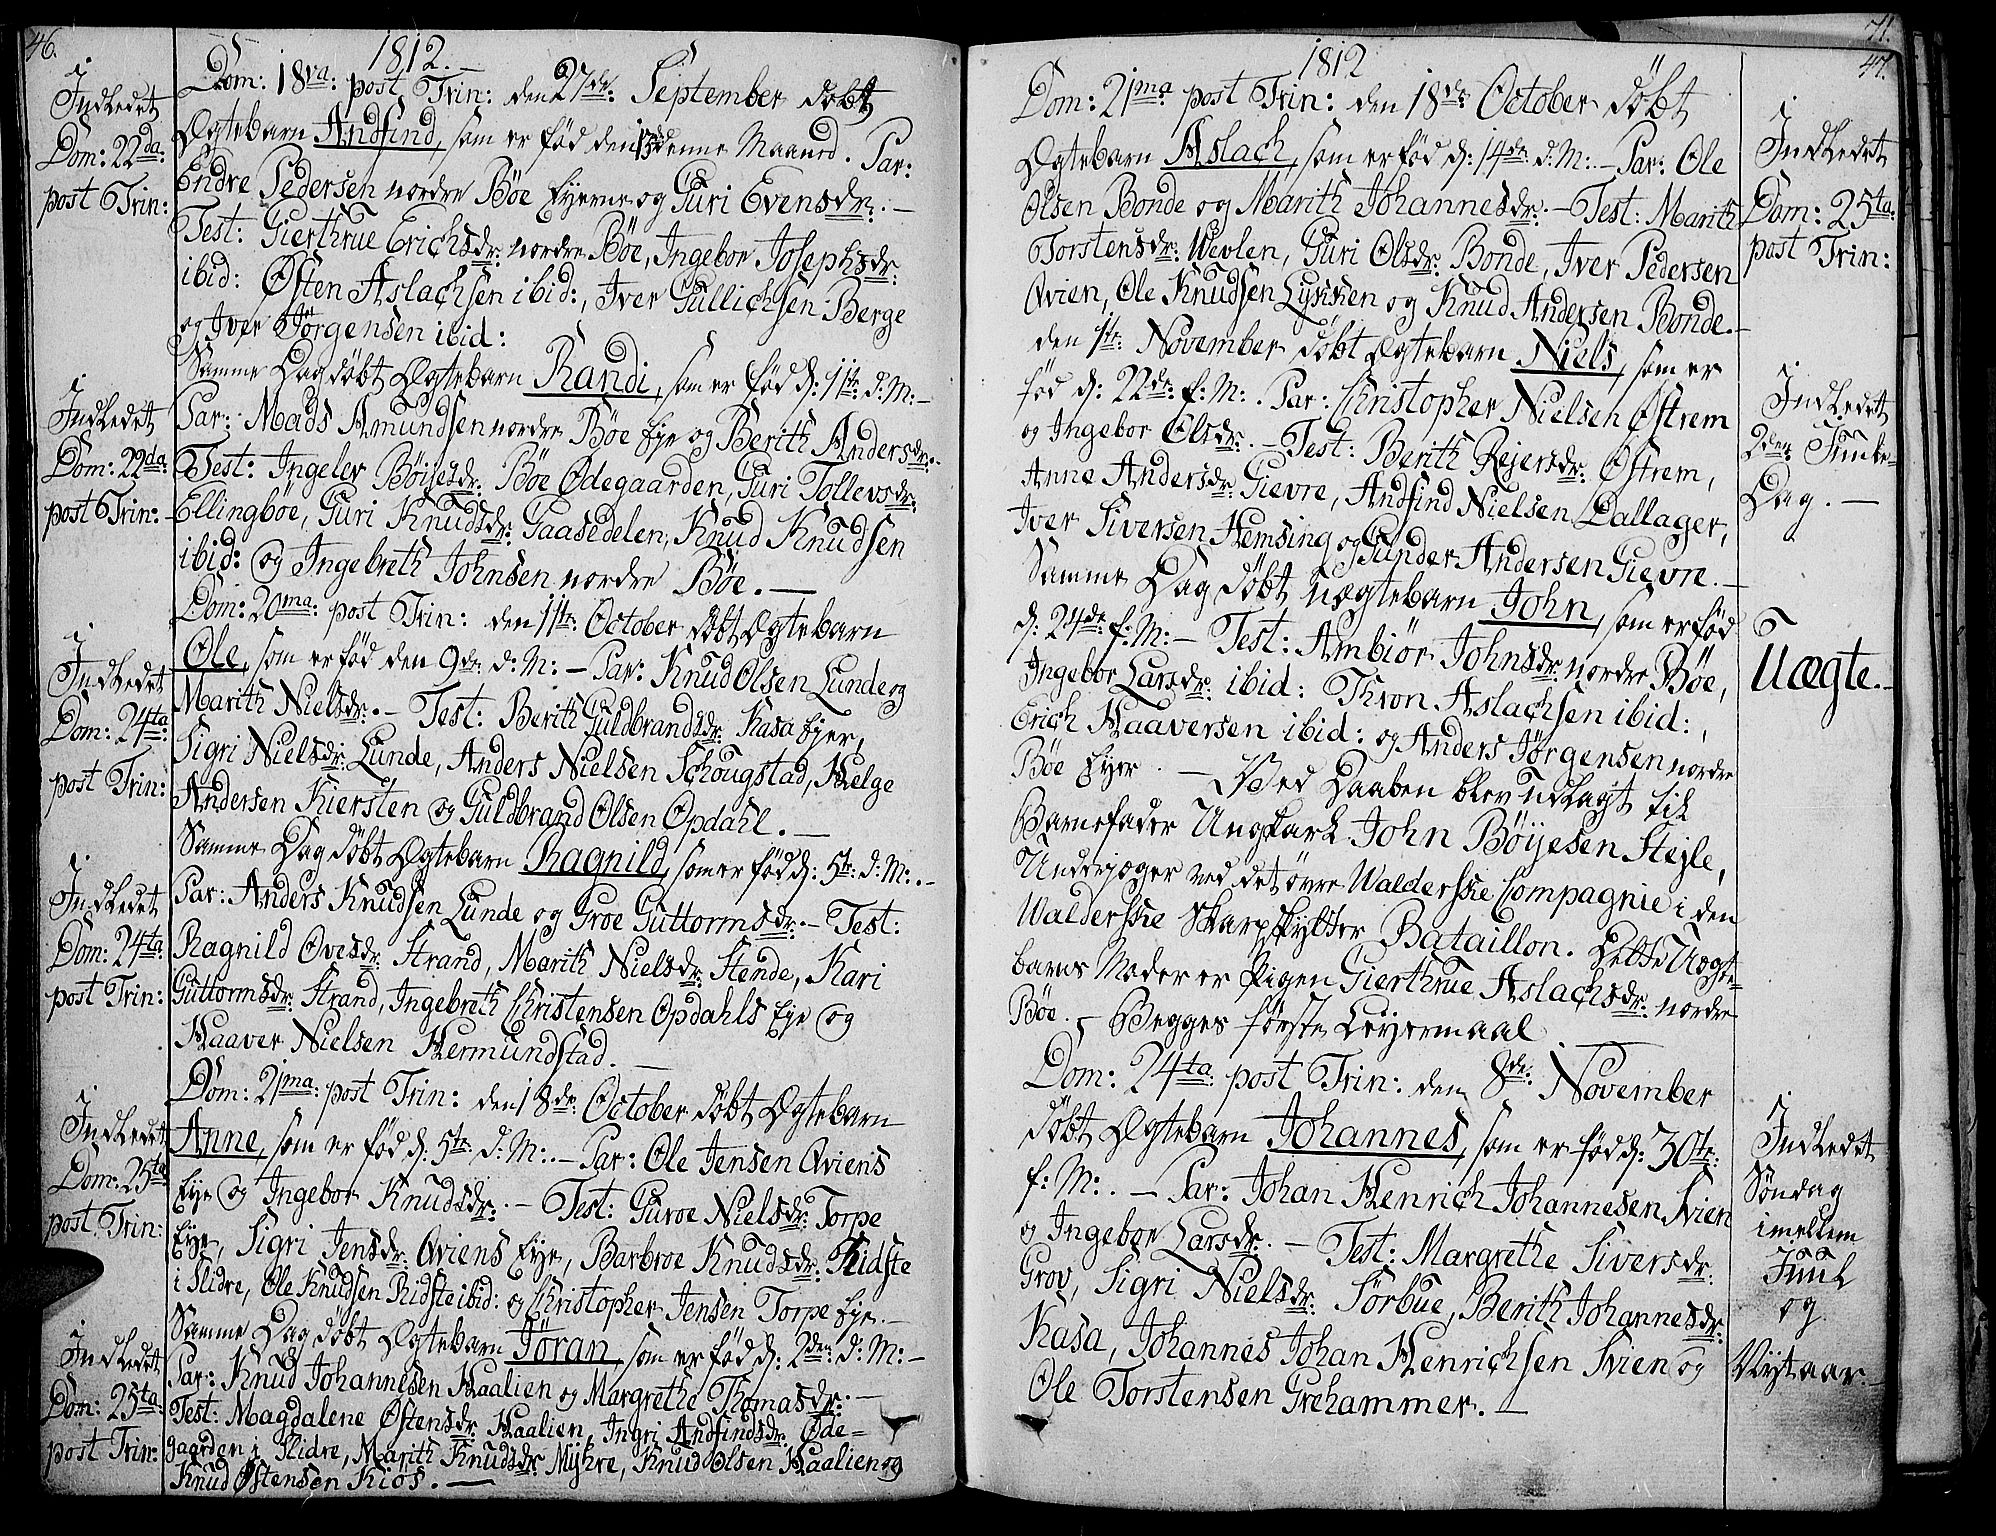 46.
1812.
Indledet
Dom: 22da:
post Trin:
Dom: 18va: post Trin: den 27de September döbt
Ægtebarn Andfind, som er föd den denne Maaned. Par:
Endre Pedersen nordre Böe Eyerne og Guri Evensdr:. –
Test: Gierthrue Erichsdr: nordre Böe, Ingebor Josephsdr:
ibid: Östen Aslachsen ibid:, Iver Gullichsen Berge
og Iver Jörgensen ibid:
Indledet
Dom: 22da:
post Trin:
Samme Dag döbt Ægtebarn Randi, som er föd d: 11te d: M: –
Par: Mads Amundsen nordre Böe Eye og Berith Andersdr:.
Test: Ingeler Böyesdr: Böe Ödegaarden, Guri Tollevsdr:
Ellingböe, Guri Knudsdr: Gaasedelen, Knud Knudsen
ibid: og Ingebreth Johnsen nordre Böe. –
Indledet
Dom: 24ta:
post Trin:
Dom: 20ma: post Trin: den 11te October döbt Ægtebarn
Ole, som er föd den 9de d: M: – Par: Knud Olsen Lunde og
Marith Nielsdr:. – Test: Berith Guldbrandsdr: Kasa Eyer,
Sigri Nielsdr: Lunde, Anders Nielsen Schougstad, Helge
Andersen Kiersten og Guldbrand Olsen Opdahl. –
Indledet
Dom: 24ta:
post Trin:
Samme Dag döbt Ægtebarn Ragnild, som er föd d: 5te d: M:. –
Par: Anders Knudsen Lunde og Groe Guttormsdr:. – Test:
Ragnild Ovesdr: Strand, Marith Nielsdr: Stende, Kari
Guttormsdr: Strand, Ingebreth Christensen Opdahls Eye og
Haaver Nielsen Hermundstad. –
Indledet
Dom: 25ta
post Trin:
Dom: 21ma: post Trin: den 18de October döbt Ægtebarn
Anne, som er föd d: 5te d: M:. – Par: Ole Jensen Qviens
Eye og Ingebor Knudsdr:. – Test: Guroe Nielsdr: Torpe
Eye, Sigri Jensdr: Qviens Eye, Barbroe Knudsdr: Ridste
i Slidre, Ole Knudsen Ridste ibid: og Christopher Jensen Torpe Eye. –
Indledet
Dom: 25ta:
post Trin:
Samme Dag döbt Ægtebarn Jöran, som er föd d: 2den d: M: –
Par: Knud Johannesen Haalien og Margrethe Thomasdr:. –
Test: Magdalene Östensdr: Haalien, Ingri Andfindsdr: Öde=
gaarden i Slidre, Marith Knudsdr: Myhre, Knud Olsen Haalien og
Knud Östensen Kiös. –
71.
47.
1812
Dom: 21ma post Trin: den 18de October döbt
Ægtebarn Aslach, som er föd d: 14de d: M: – Par: Ole
Olsen Bonde og Marith Johannesdr:. – Test: Marith
Torstensdr: Wevlen, Guri Olsdr: Bonde, Iver Pedersen
Qvien, Ole Knudsen Lykken og Knud Andersen Bonde. –
Indledet
Dom: 25ta:
post Trin:
den 1te November döbt Ægtebarn Niels, som er
föd d: 22de f: M:. Par: Christopher Nielsen Östrem
og Ingebor Olsdr:. – Test: Berith Rejersdr: Östrem,
Anne Andersdr: Gievre, Andfind Nielsen Dallager,
Iver Siversen Hemsing og Gunder Andersen Gievre. –
Indledet
2den Juule=
Dag. –
Samme Dag döbt uægtebarn John, som er föd
d: 24de f: M: – Test: Ambiör Johnsdr: nordre Böe,
Ingebor Larsdr: ibid: Thron Aslachsen ibid:,
Erich Haaversen ibid: og Anders Jörgensen nordre
Böe Eyer. – Ved Daaben blev udlagt til
Barnefader Ungkarl John Böyesen Stejle,
Underjæger ved det övre Walderske Compagnie i den
Walderske Skarpskytter Bataillon. Dette Uægte=
barns Moder er Pigen Gierthrue Aslachsdr: nordre
Böe. – Begges förste Leyermaal.
Uægte. –
Dom: 24ta: post Trin: den 8de: November
döbt Ægtebarn Johannes, som er föd d: 30te:
f: M:. – Par: Johan Henrich Johannesen Svien
og Ingebor Larsdr:. – Test: Margrethe Siversdr:
Grov, Sigri Nielsdr: Sörbue, Berith Johannesdr:
Kasa, Johannes Johan Henrichsen Svien og
Ole Torstensen Grehammer. –
Indledet
Söndag
imellem
Juul
og
Nytaar –